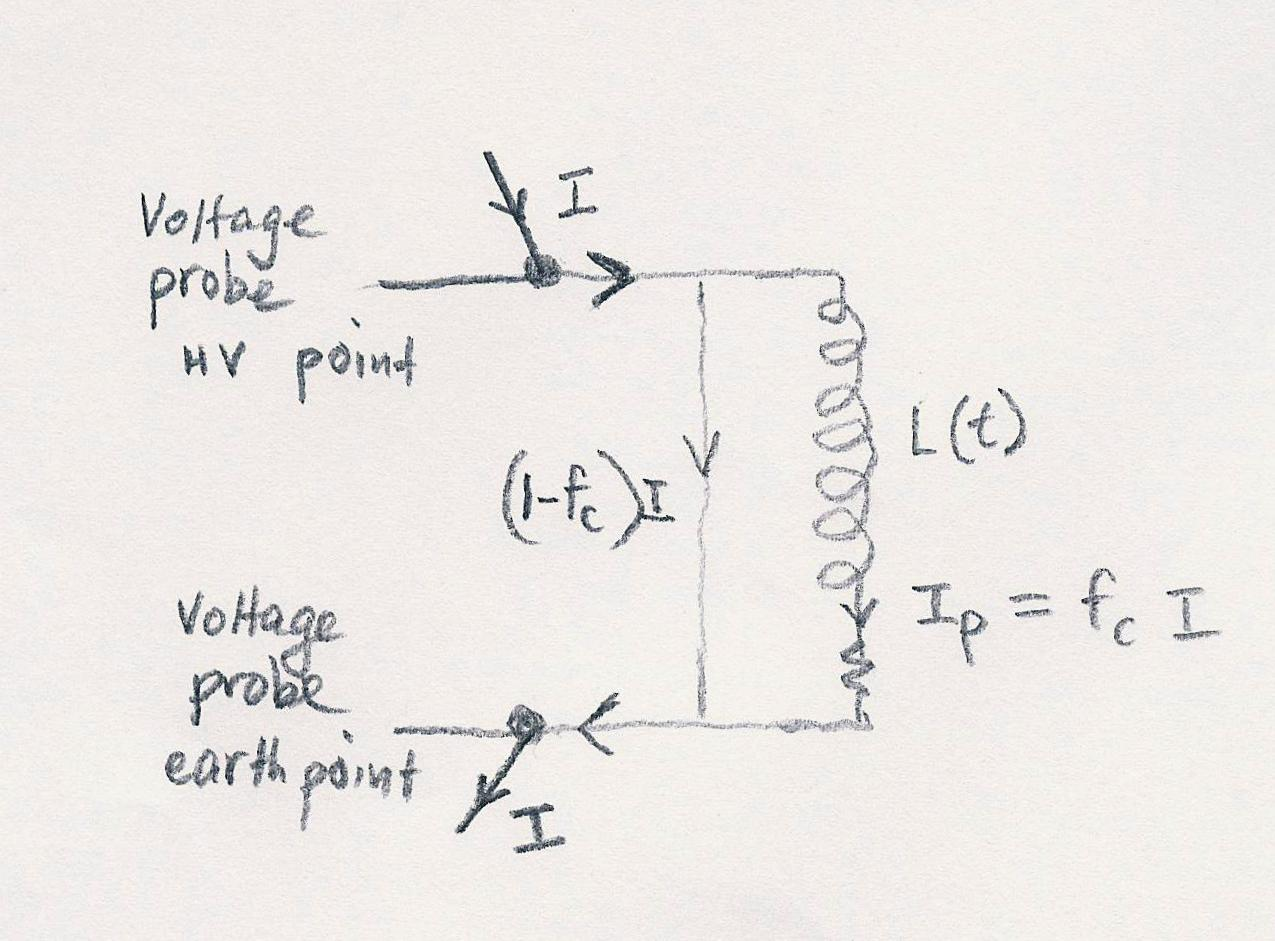 I
Voltage
probe
HV point
L(t)
(1-fc)I
Ip = fc I
Voltage
probe
earth point
I